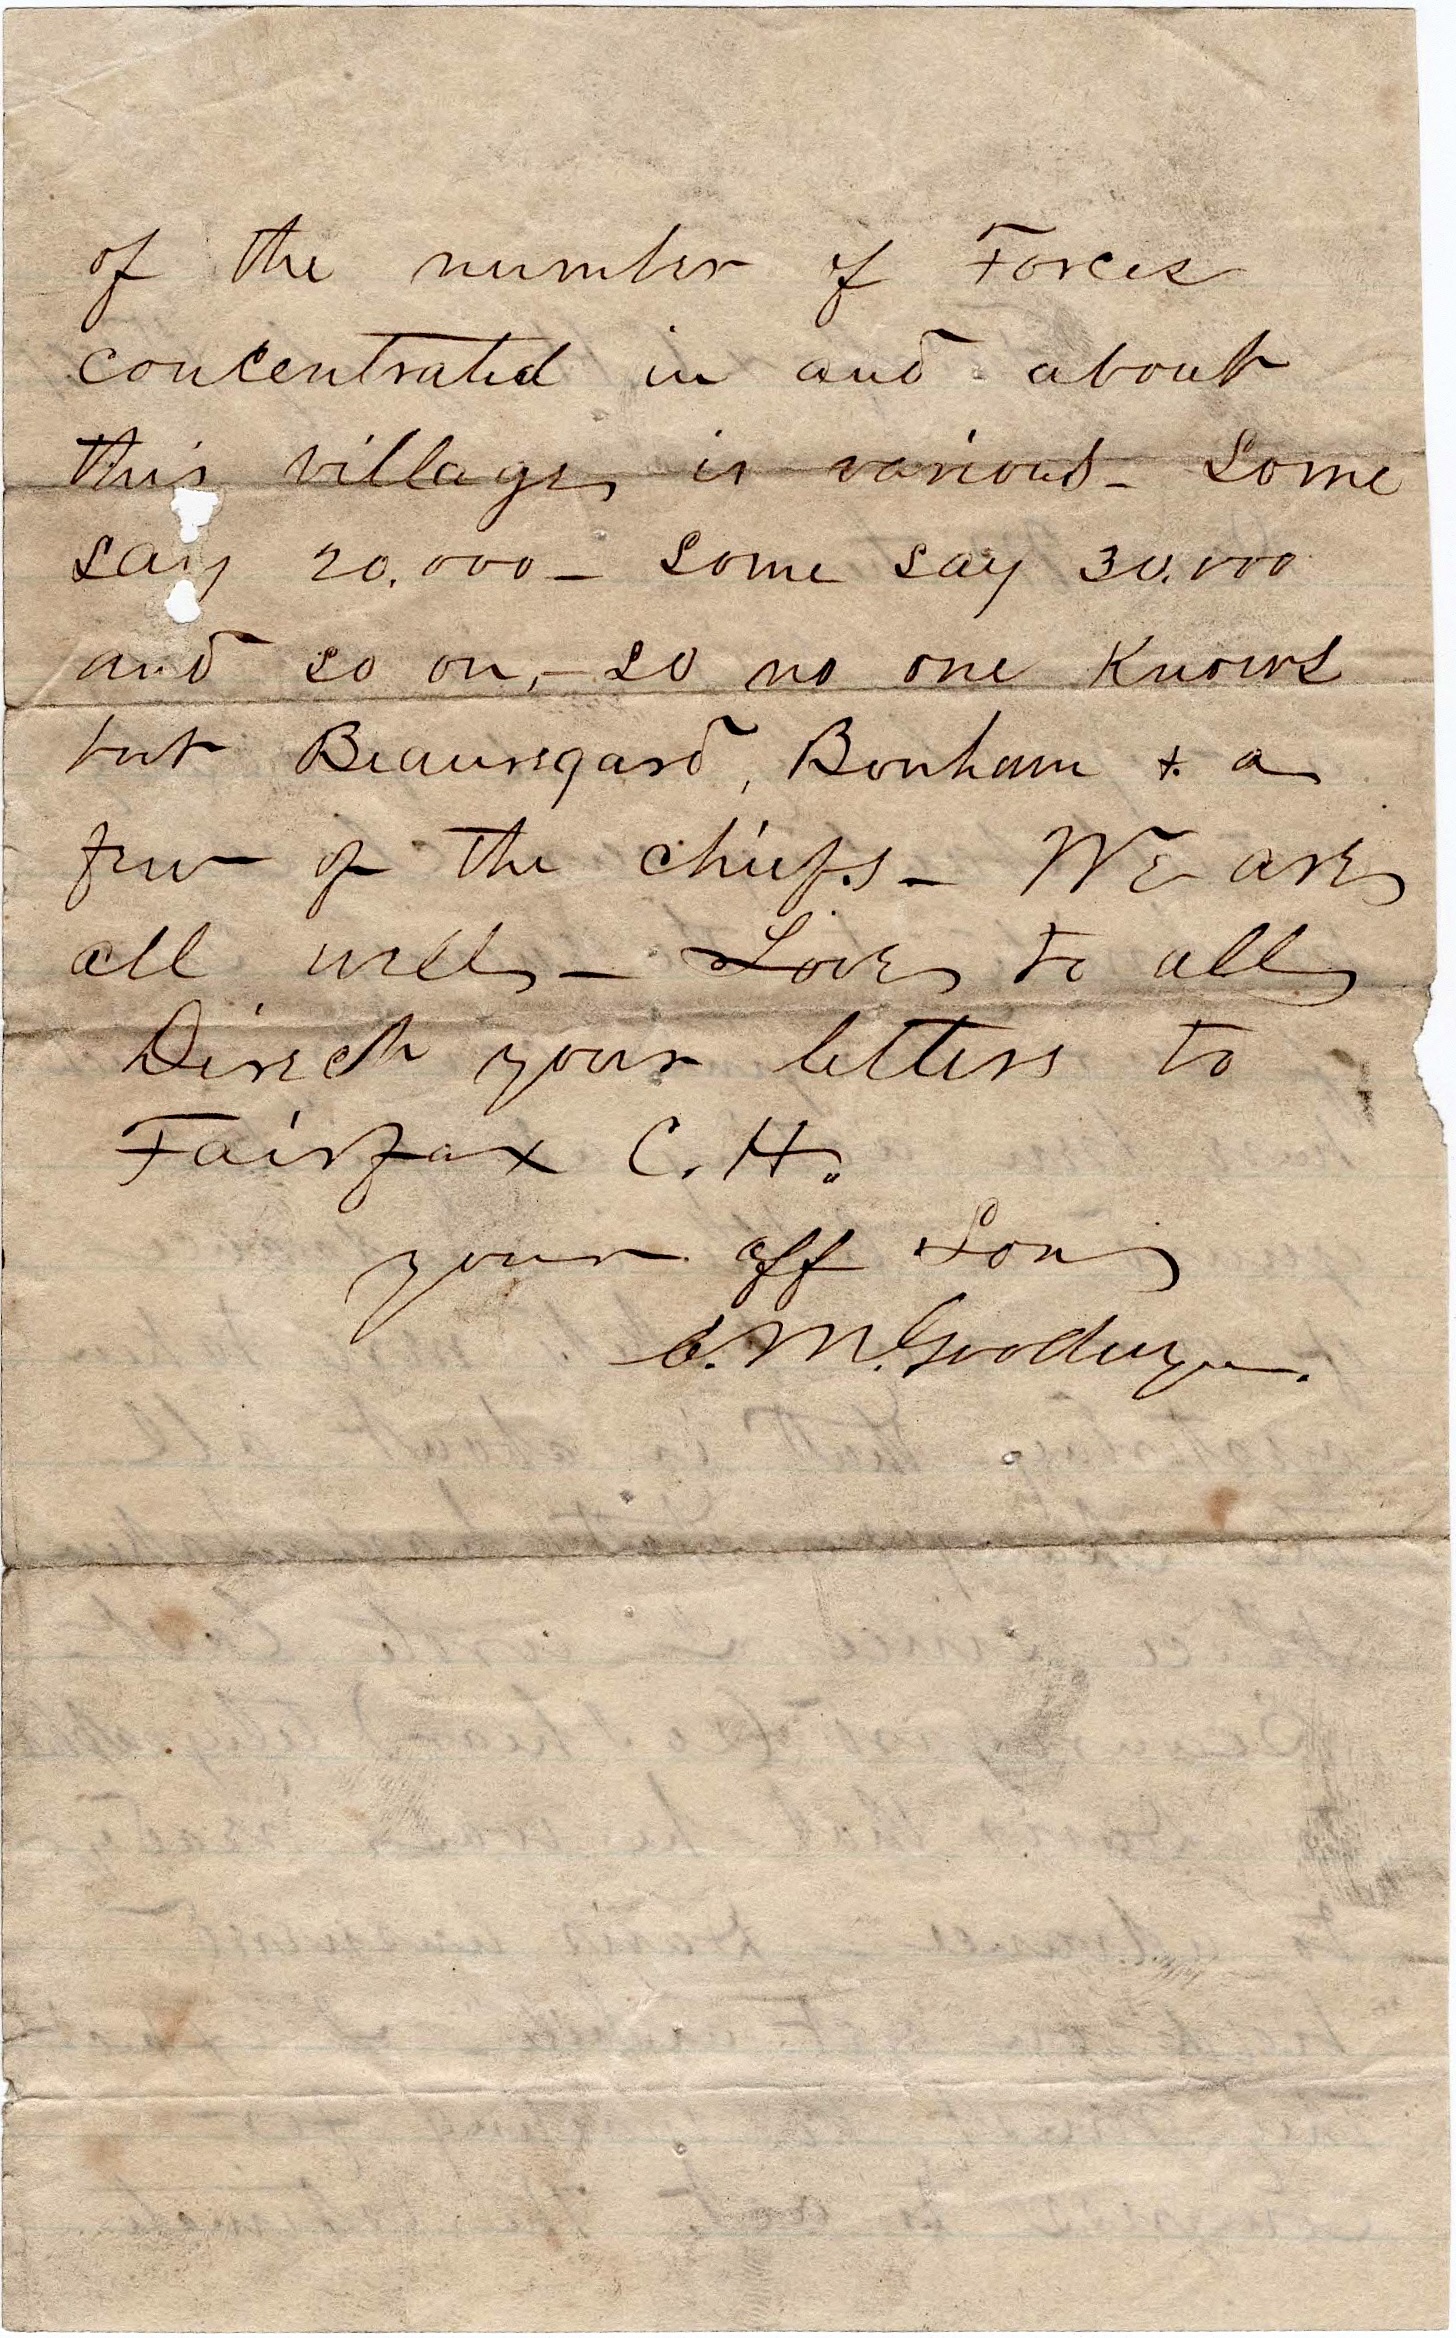 of the number of Forces
concentrated in and about
this village is various - Some
say 20.000 - Some say 30.000
and so on, - so no one Knows
but Beauregard, Bonham & a
few of the chiefs - We are
all well - Love to all
Direct your letters to
Fairfax C. H.
your aff Son
C. M. Goodwyn.